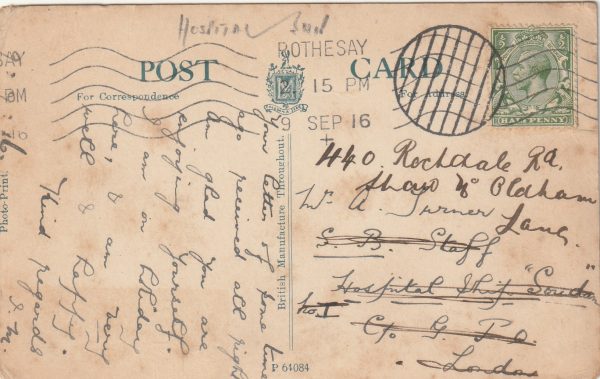 Hospital
POST CARD
For Correspondence
For Address
ROTHESAY
15 PM
9 SEP 16
HALFPENNY
Your letter of some time
ago received all right
Am glad you are
enjoying yourself.
I am on holiday
here, & am very
well & happy.
Kind regards
440. Rochdale Rd.
Shaw Nr Oldham
Lancs.
Mr A. Turner
S. B. Staff
Hospital Ship "Soudan"
No I
C/o G P O
London
British Manufacture Throughout.
Photo Print.
P 64084